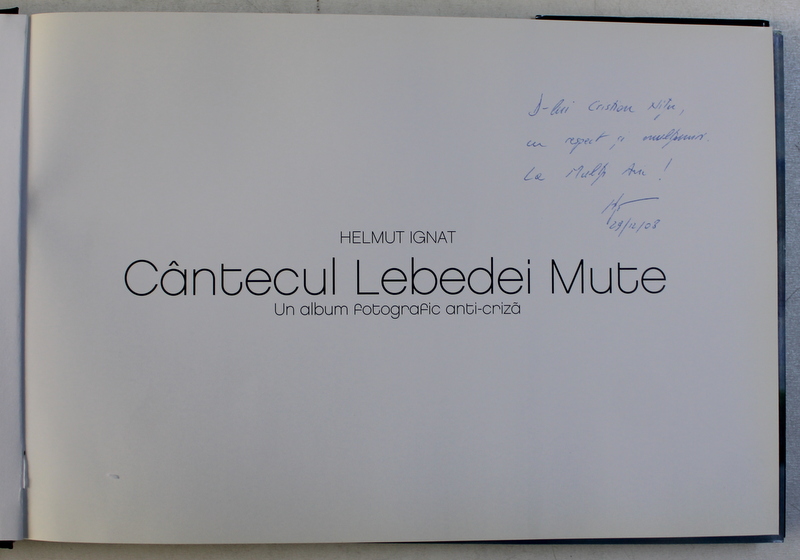 D-lui Cristian
cu respect și mulțumiri.
La Mulți Ani!
29/12/08
HELMUT IGNAT
Cântecul Lebedei Mute
Un album fotografic anti-criză